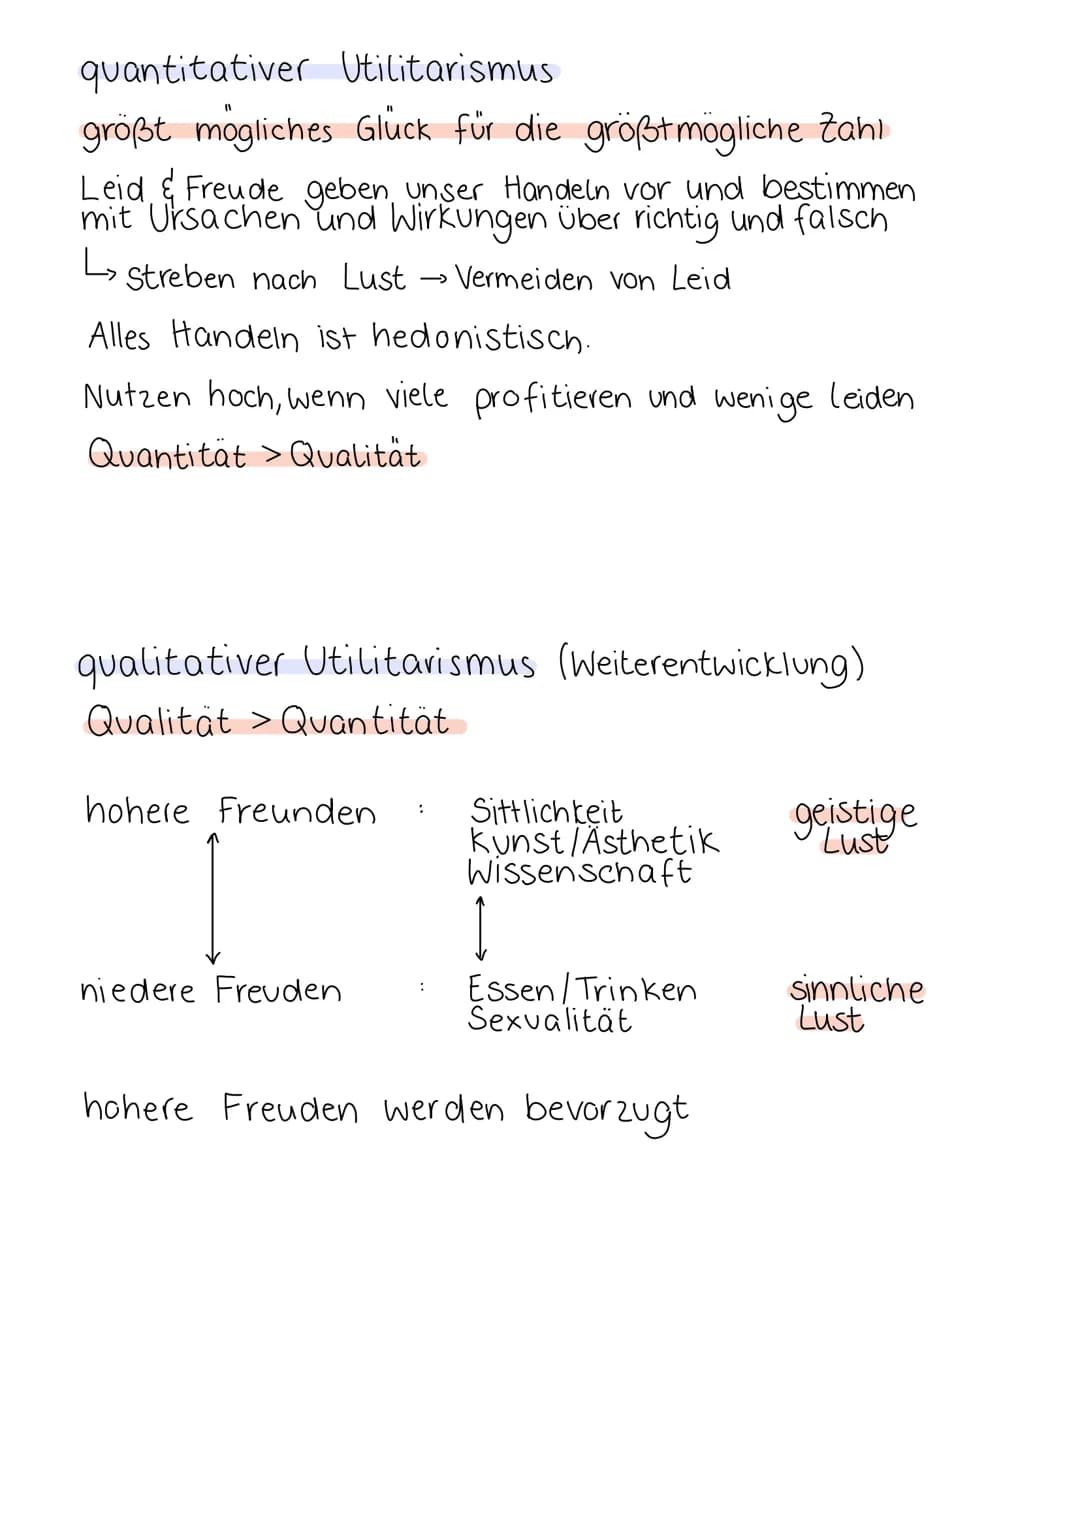 quantitativer Utilitarismus
größt mögliches Glück für die größtmögliche Zahl
Leid & Freude geben unser Handeln vor und bestimmen
mit Ursachen und Wirkungen über richtig und falsch
↳ Streben nach Lust → Vermeiden von Leid
Alles Handeln ist hedonistisch.
Nutzen hoch, wenn viele profitieren und wenige leiden
Quantität > Qualität
qualitativer Utilitarismus (Weiterentwicklung)
Qualität > Quantität
hohere Freunden : Sittlichkeit geistige
Kunst/Ästhetik Lust
Wissenschaft
niedere Freuden : Essen/Trinken sinnliche
Sexualität Lust
hohere Freuden werden bevorzugt